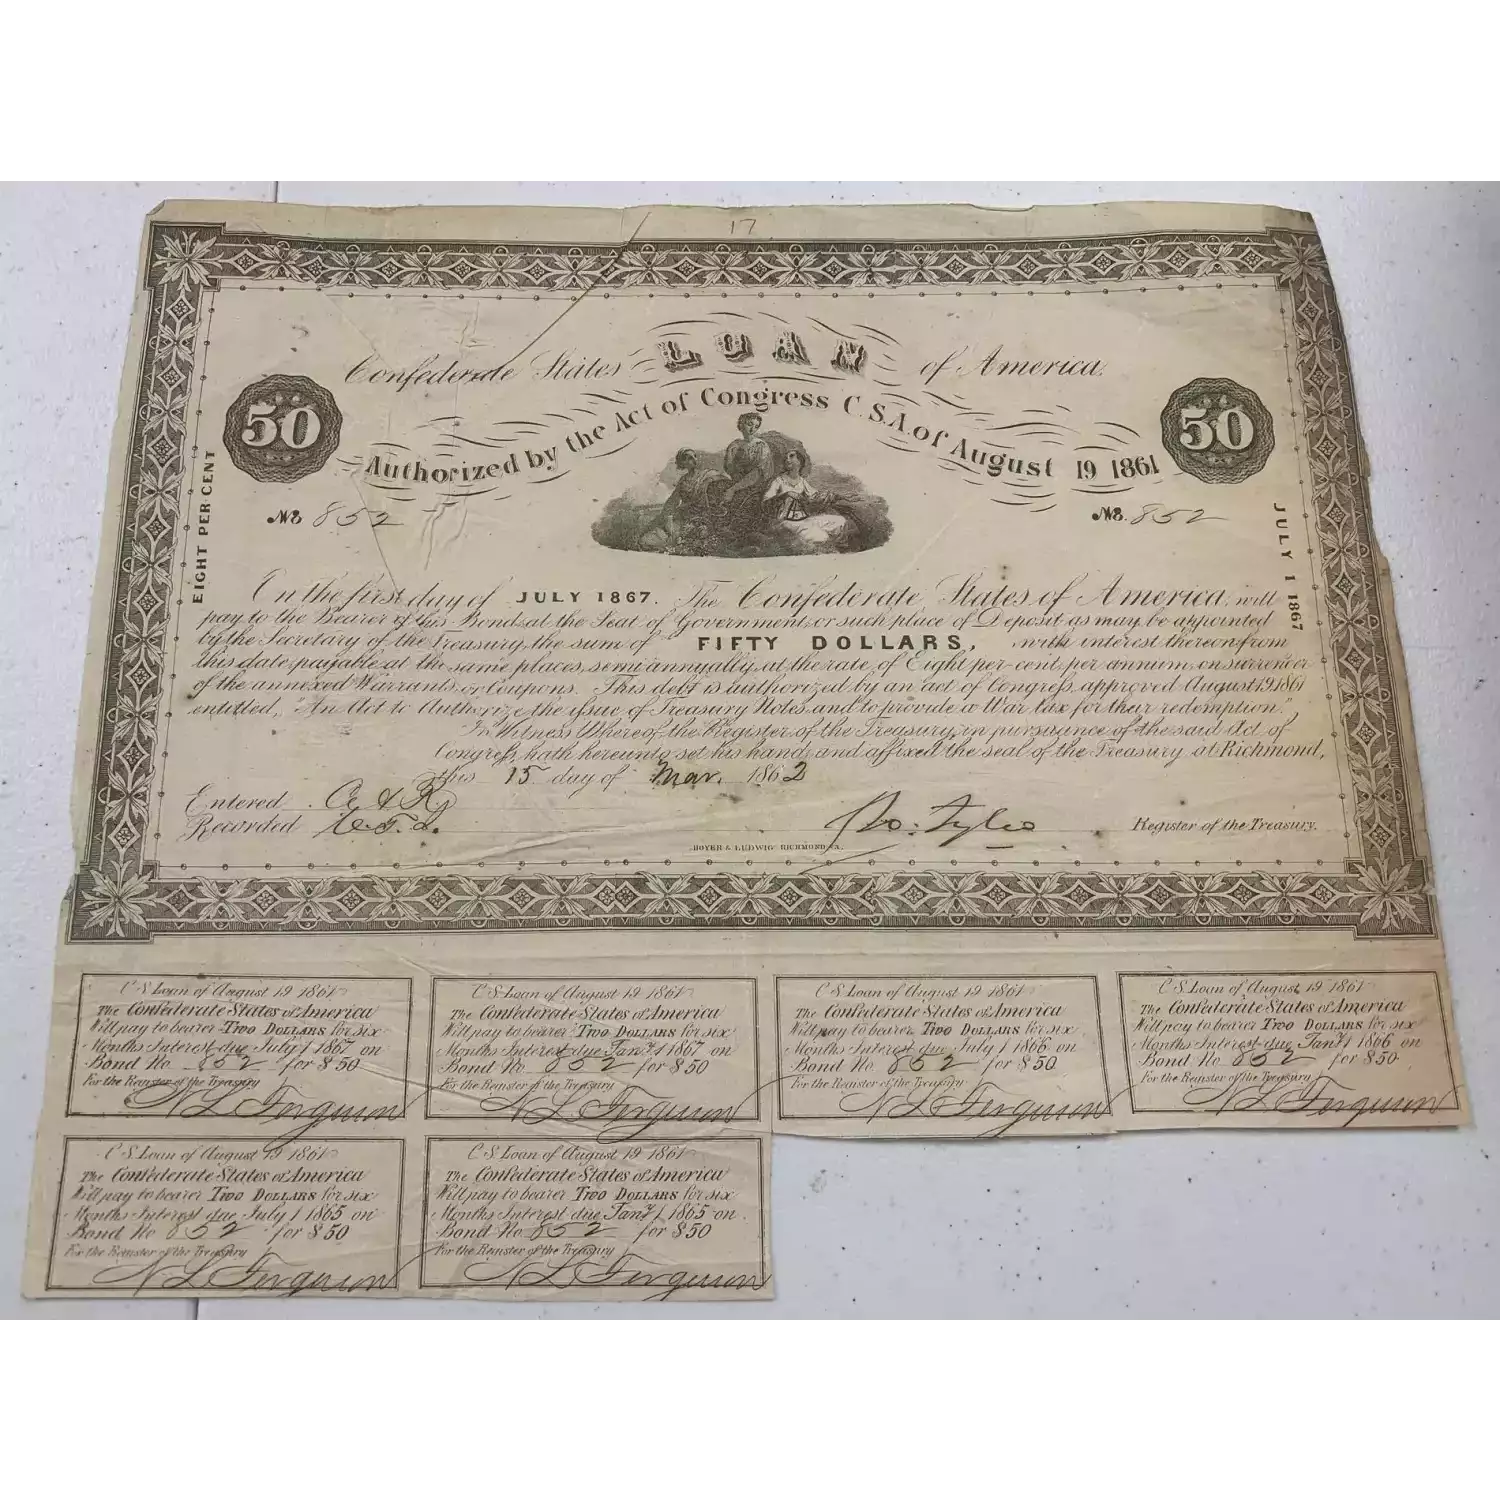 17
Confederate States LOAN of America.
Authorized by the Act of Congress C.S.A. of August 19 1861
50
50
No 852
No. 852
EIGHT PER CENT
JULY 1 1867
On the first day of JULY 1867. The Confederate States of America, will
pay to the Bearer of this Bond, at the Seat of Government, or such place of Deposit as may be appointed
by the Secretary of the Treasury, the sum of FIFTY DOLLARS, with interest thereon from
this date payable at the same places, semi annually, at the rate of Eight per-cent, per annum, on surrender
of the annexed Warrants, or Coupons. This debt is authorized by an act of Congress, approved August 19, 1861
entitled, "An Act to Authorize the issue of Treasury Notes, and to provide a War tax for their redemption."
In Witness Whereof the Register of the Treasury, in pursuance of the said Act of
Congress, hath hereunto set his hand, and affixed the seal of the Treasury, at Richmond,
this 15 day of Mar. 1862
Entered
Recorded
Ro. Tyler Register of the Treasury.
BOYER & LUDWIG RICHMOND VA.
C S Loan of August 19 1861
The Confederate States of America
Will pay to bearer Two Dollars for six
Months Interest due July 1 1867 on
Bond No 852 for $50
For the Register of the Treasury
N L Ferguson
C S Loan of August 19 1861
The Confederate States of America
Will pay to bearer Two Dollars for six
Months Interest due Jany 1 1867 on
Bond No 852 for $50
For the Register of the Treasury
N L Ferguson
C S Loan of August 19 1861
The Confederate States of America
Will pay to bearer Two Dollars for six
Months Interest due July 1 1866 on
Bond No 852 for $50
For the Register of the Treasury
N L Ferguson
C S Loan of August 19 1861
The Confederate States of America
Will pay to bearer Two Dollars for six
Months Interest due Jany 1 1866 on
Bond No 852 for $50
For the Register of the Treasury
N L Ferguson
C S Loan of August 19 1861
The Confederate States of America
Will pay to bearer Two Dollars for six
Months Interest due July 1 1865 on
Bond No 852 for $50
For the Register of the Treasury
N L Ferguson
C S Loan of August 19 1861
The Confederate States of America
Will pay to bearer Two Dollars for six
Months Interest due Jany 1 1865 on
Bond No 852 for $50
For the Register of the Treasury
N L Ferguson